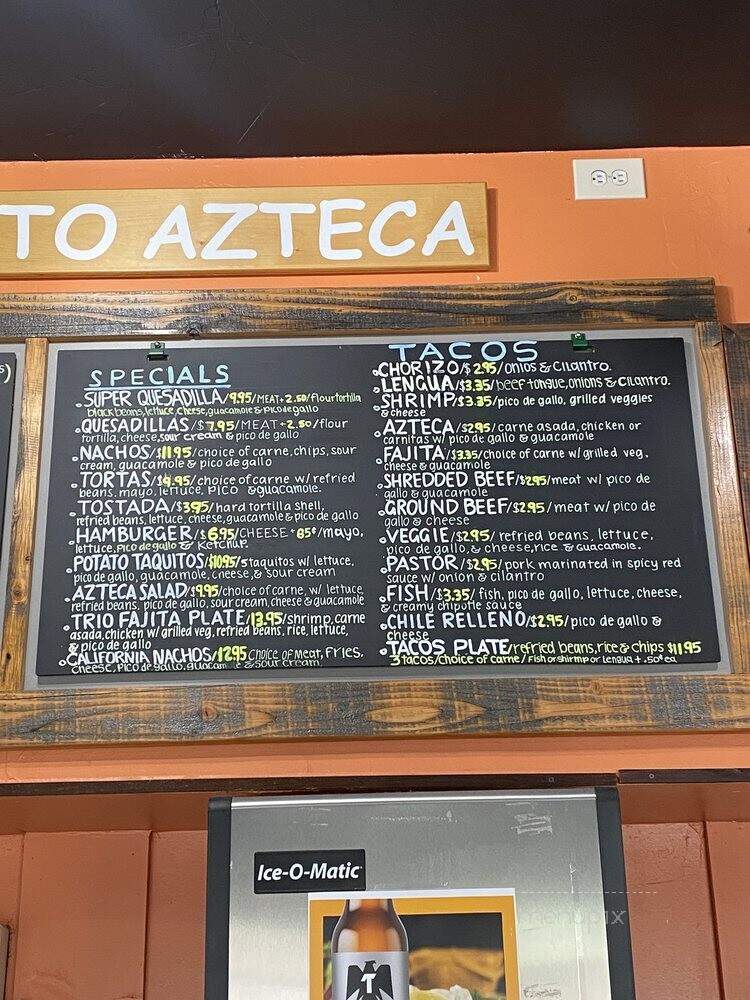 TO AZTECA
s)
SPECIALS
SUPER QUESADILLA/9.95/MEAT+2.50/flour tortilla
black beans, lettuce, cheese, guacamole & pico de gallo
QUESADILLAS/$7.95/MEAT+2.50/flour
tortilla, cheese, sour cream & pico de gallo
NACHOS/$11.95/choice of carne, chips, sour
cream, guacamole & pico de gallo
TORTAS/$9.95/choice of carne w/ refried
beans, mayo, lettuce, PICO & guacamole.
TOSTADA/$3.95/hard tortilla shell,
refried beans, lettuce, cheese, guacamole & pico de gallo
HAMBURGER/$6.95/CHEESE+85¢/mayo,
lettuce, pico de gallo & Ketchup.
POTATO TAQUITOS/$10.95/5 taquitos w/ lettuce,
pico de gallo, guacamole, cheese, & sour cream
AZTECA SALAD/$9.95/choice of carne, w/ lettuce,
refried beans, pico de gallo, sour cream, cheese & guacamole
TRIO FAJITA PLATE/13.95/shrimp, carne
asada, chicken w/ grilled veg, refried beans, rice, lettuce,
& pico de gallo
CALIFORNIA NACHOS/12.95 choice of meat, Fries,
cheese, pico de gallo, guacam e & sour cream
TACOS
CHORIZO/$2.95/onios & cilantro.
LENGUA/$3.35/beef tongue, onions & cilantro.
SHRIMP/$3.35/pico de gallo, grilled veggies
& cheese
AZTECA/$2.95/carne asada, chicken or
carnitas w/ pico de gallo & guacamole
FAJITA/$3.35/choice of carne w/ grilled veg,
cheese & guacamole
SHREDDED BEEF/$2.95/meat w/ pico de
gallo & guacamole
GROUND BEEF/$2.95/meat w/ pico de
gallo & cheese
VEGGIE/$2.95/refried beans, lettuce,
pico de gallo, & cheese, rice & Guacamole.
PASTOR/$2.95/pork marinated in spicy red
sauce w/ onion & cilantro
FISH/$3.35/fish, pico de gallo, lettuce, cheese,
& creamy chipotle sauce
CHILE RELLENO/$2.95/pico de gallo &
cheese
TACOS PLATE/refried beans, rice & chips $11.95
3 tacos/choice of carne/Fish or shirmp or Lengua +.50¢ ea
Ice-O-Matic
T